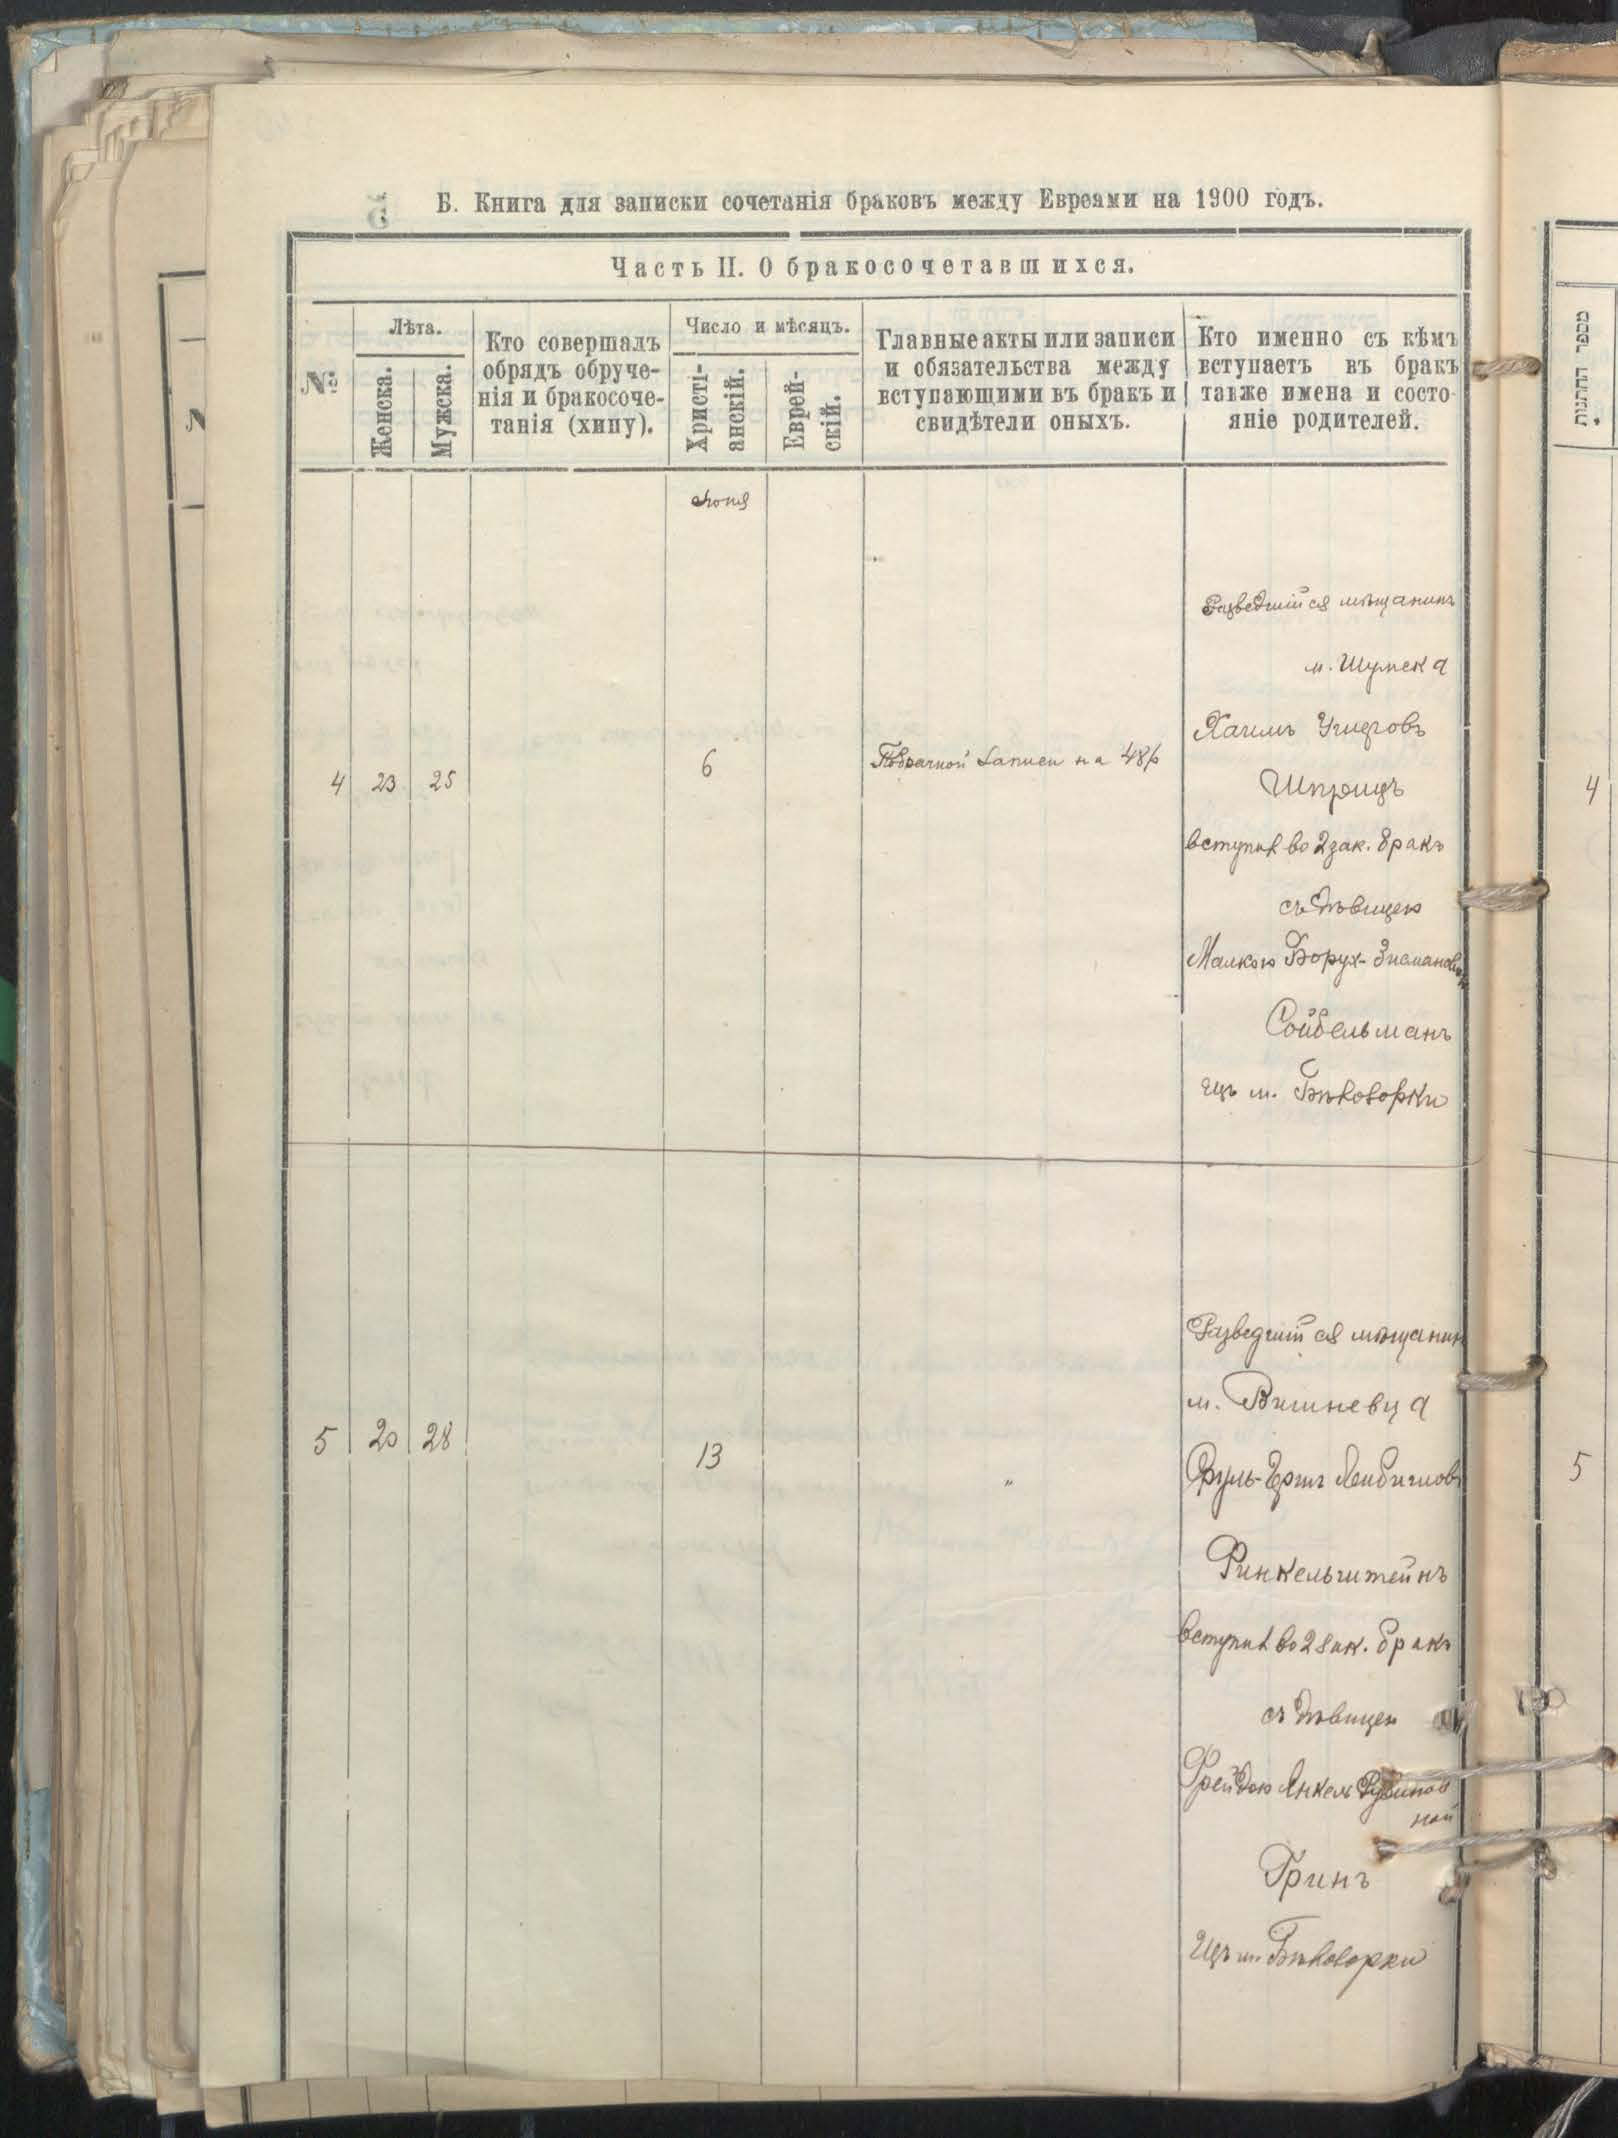 Б. Книга для записки сочетанія браковъ между Евреями на 1900 годъ.
Часть II. О бракосочетавшихся.
№
Лѣта.
Женска.
Мужска.
Кто совершалъ
обрядъ обруче-
нія и бракосоче-
танія (хипу).
Число и мѣсяцъ.
Христі-
анскій.
Еврей-
скій.
Главные акты или записи
и обязательства между
вступающими въ бракъ и
свидѣтели оныхъ.
Кто именно съ кѣмъ
вступаетъ въ бракъ
также имена и состо-
яніе родителей.
מספר החתנות
Разведшійся мѣщанинъ
м. Шумска
Хаимъ
Шприцъ
4 23 25 6 записи на 48р
вступил во 2 зак. бракъ
съ дѣвицею
Малкою Борух-Зисмановною
Сойбельманъ
изъ м. Бѣлозорки
4
Разведшійся мѣщанин
м. Вишневца
5 20 28 13 "
Сруль-Герш Лейбишов
Финкельштейнъ
вступил во 2 зак. бракъ
съ дѣвицею
Фрейдою Янкель Рубинов
ной
Гринъ
Изъ м. Бѣлозорки
5